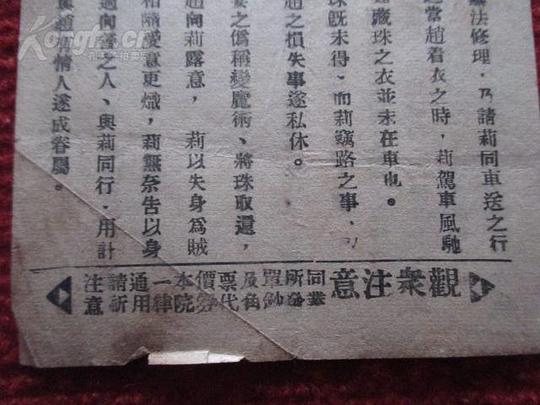 法修理．乃請莉同車送之行
當趙着衣之時，莉駕車風馳
藏珠之衣並未在車也。
珠旣未得、而莉竊路之事，
趙之損失事遂私休。
妻之僞稱變魔術、將珠取還，
趙向莉露意，莉以失身爲賊
相隨愛意更熾，莉無奈告以身
向善之人、與莉同行．用計
情人遂成眷屬。
觀衆注意
同業所發單及角票代價券本院一律通用請祈注意